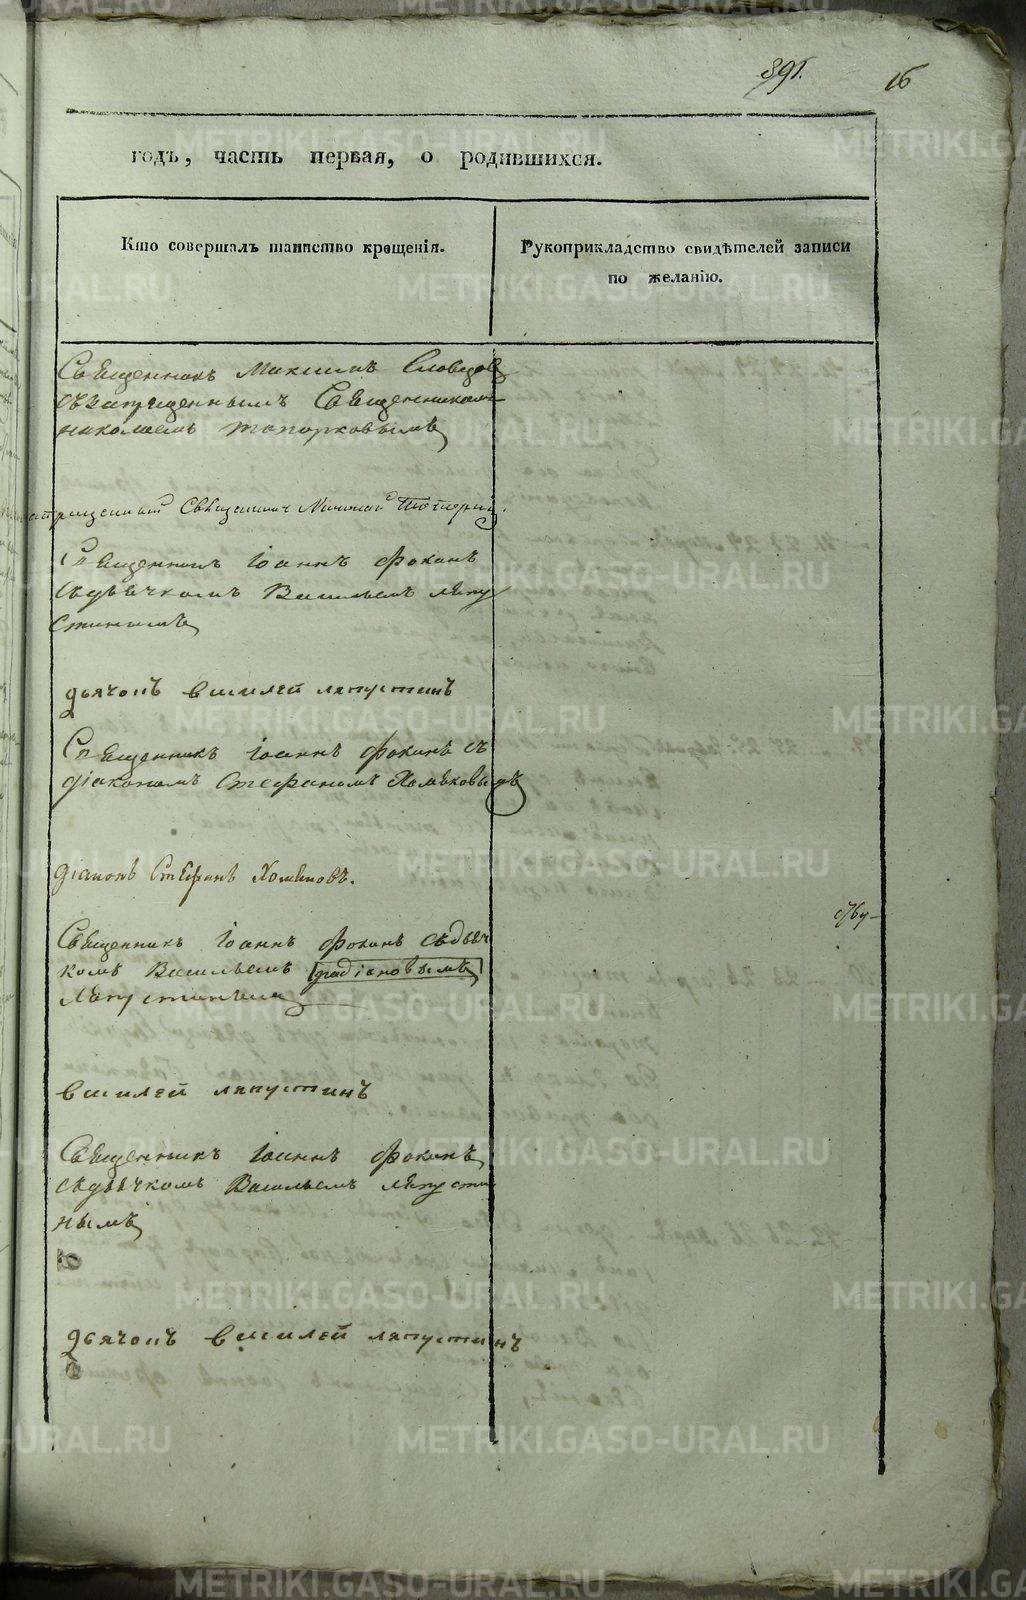 391.
16
годъ, часть первая, о родившихся.
Кто совершалъ таинство крещенія.
Рукоприкладство свидѣтелей записи
по желанію.
Священникъ Максимъ Словцов
съ запрещеннымъ Священникомъ
николаемъ топорковымъ
Священникъ Николай
Священникъ Іоаннъ Фокинъ
съ дьячкомъ Васильемъ ляпу
стинымъ
дьячокъ василей ляпустинъ
Священникъ Іоаннъ Фокинъ съ
діакономъ Стефаномъ Хомяковымъ
діаконъ Стефанъ Хомяковъ.
Священникъ Іоаннъ Фокинъ съ дьяч
комъ Васильемъ
Ляпустинымъ
василей ляпустинъ
Священникъ Іоаннъ Фокинъ
съ дьячкомъ Васильемъ ляпусти
нымъ
дьячокъ василей ляпустинъ
METRIKI.GASO-URAL.RU